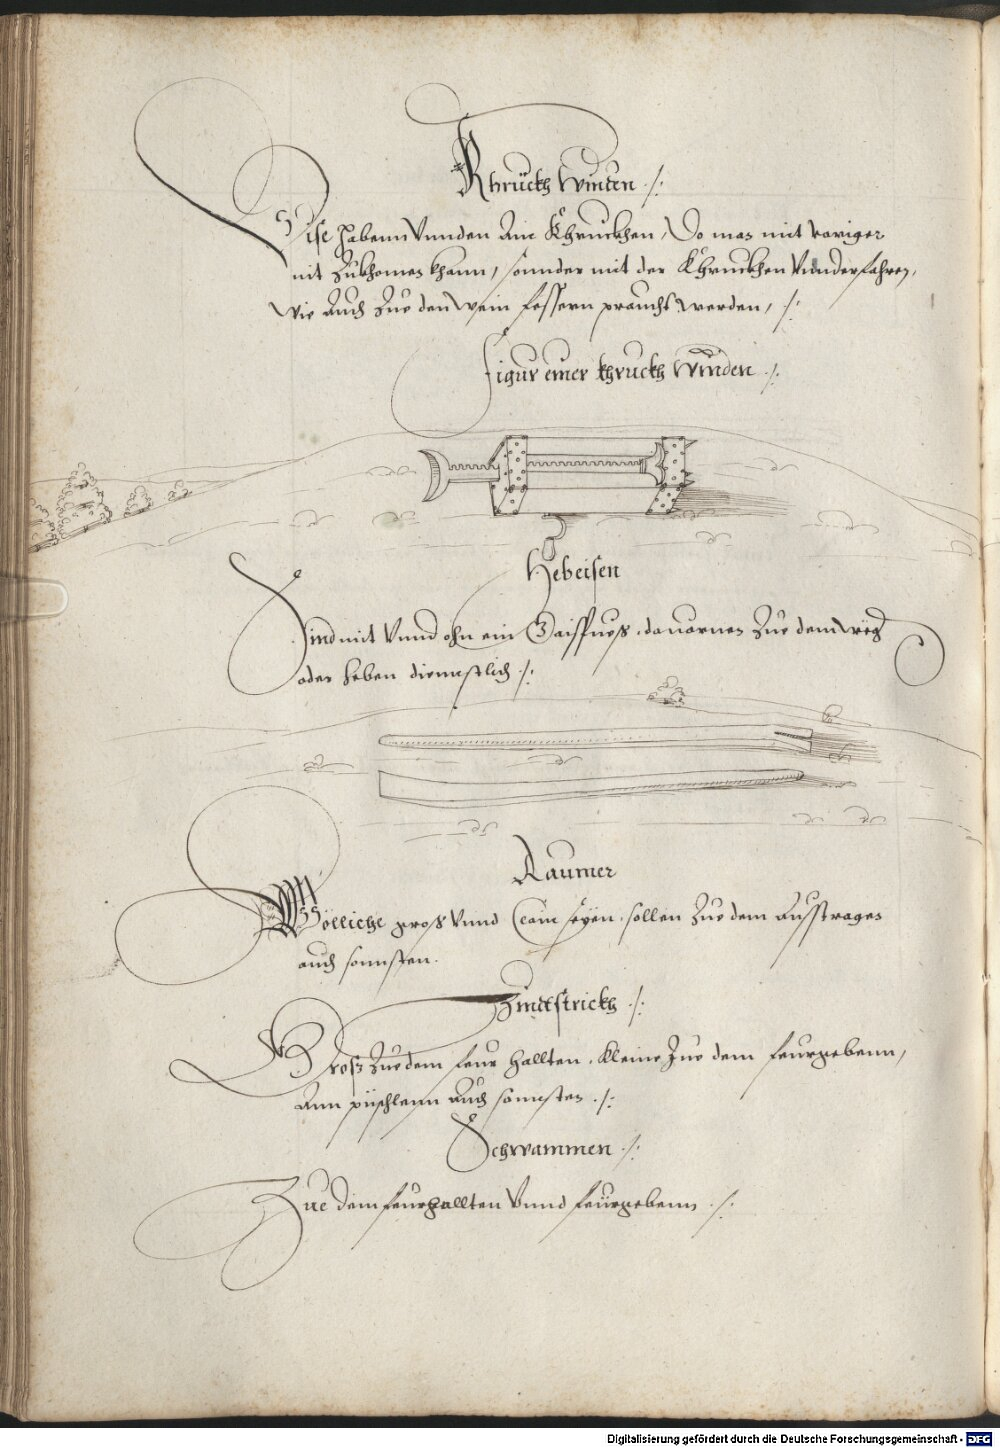 Khruckh Winden ./.
Dise habenn Vnnden Ain Khruckhen, Do man mit voriger
nit Zukhomen khann, sonnder mit der Khruckhen Vnnderfahren,
wie Auch Zue den wein fessern praucht werden, ./.
Figur einer khruckh Winden ./.
Hebeisen
Sind mit Vnnd ohn ein Gaissfuess, davornen Zue dem weg
oder heben diennstlich ./.
Raumer
Wölliche gross Vnnd Clain seyen, sollen Zue dem Ausstragen
auch sonnsten.
Zindtstrickh ./.
Gross Zue dem feur hallten, Kleine Zue dem feurgebenn,
Ann püschlenn Auch sonnsten ./.
Schwammen ./.
Zue dem feurhallten Vnnd feurgebenn ./.
Digitalisierung gefördert durch die Deutsche Forschungsgemeinschaft - DFG